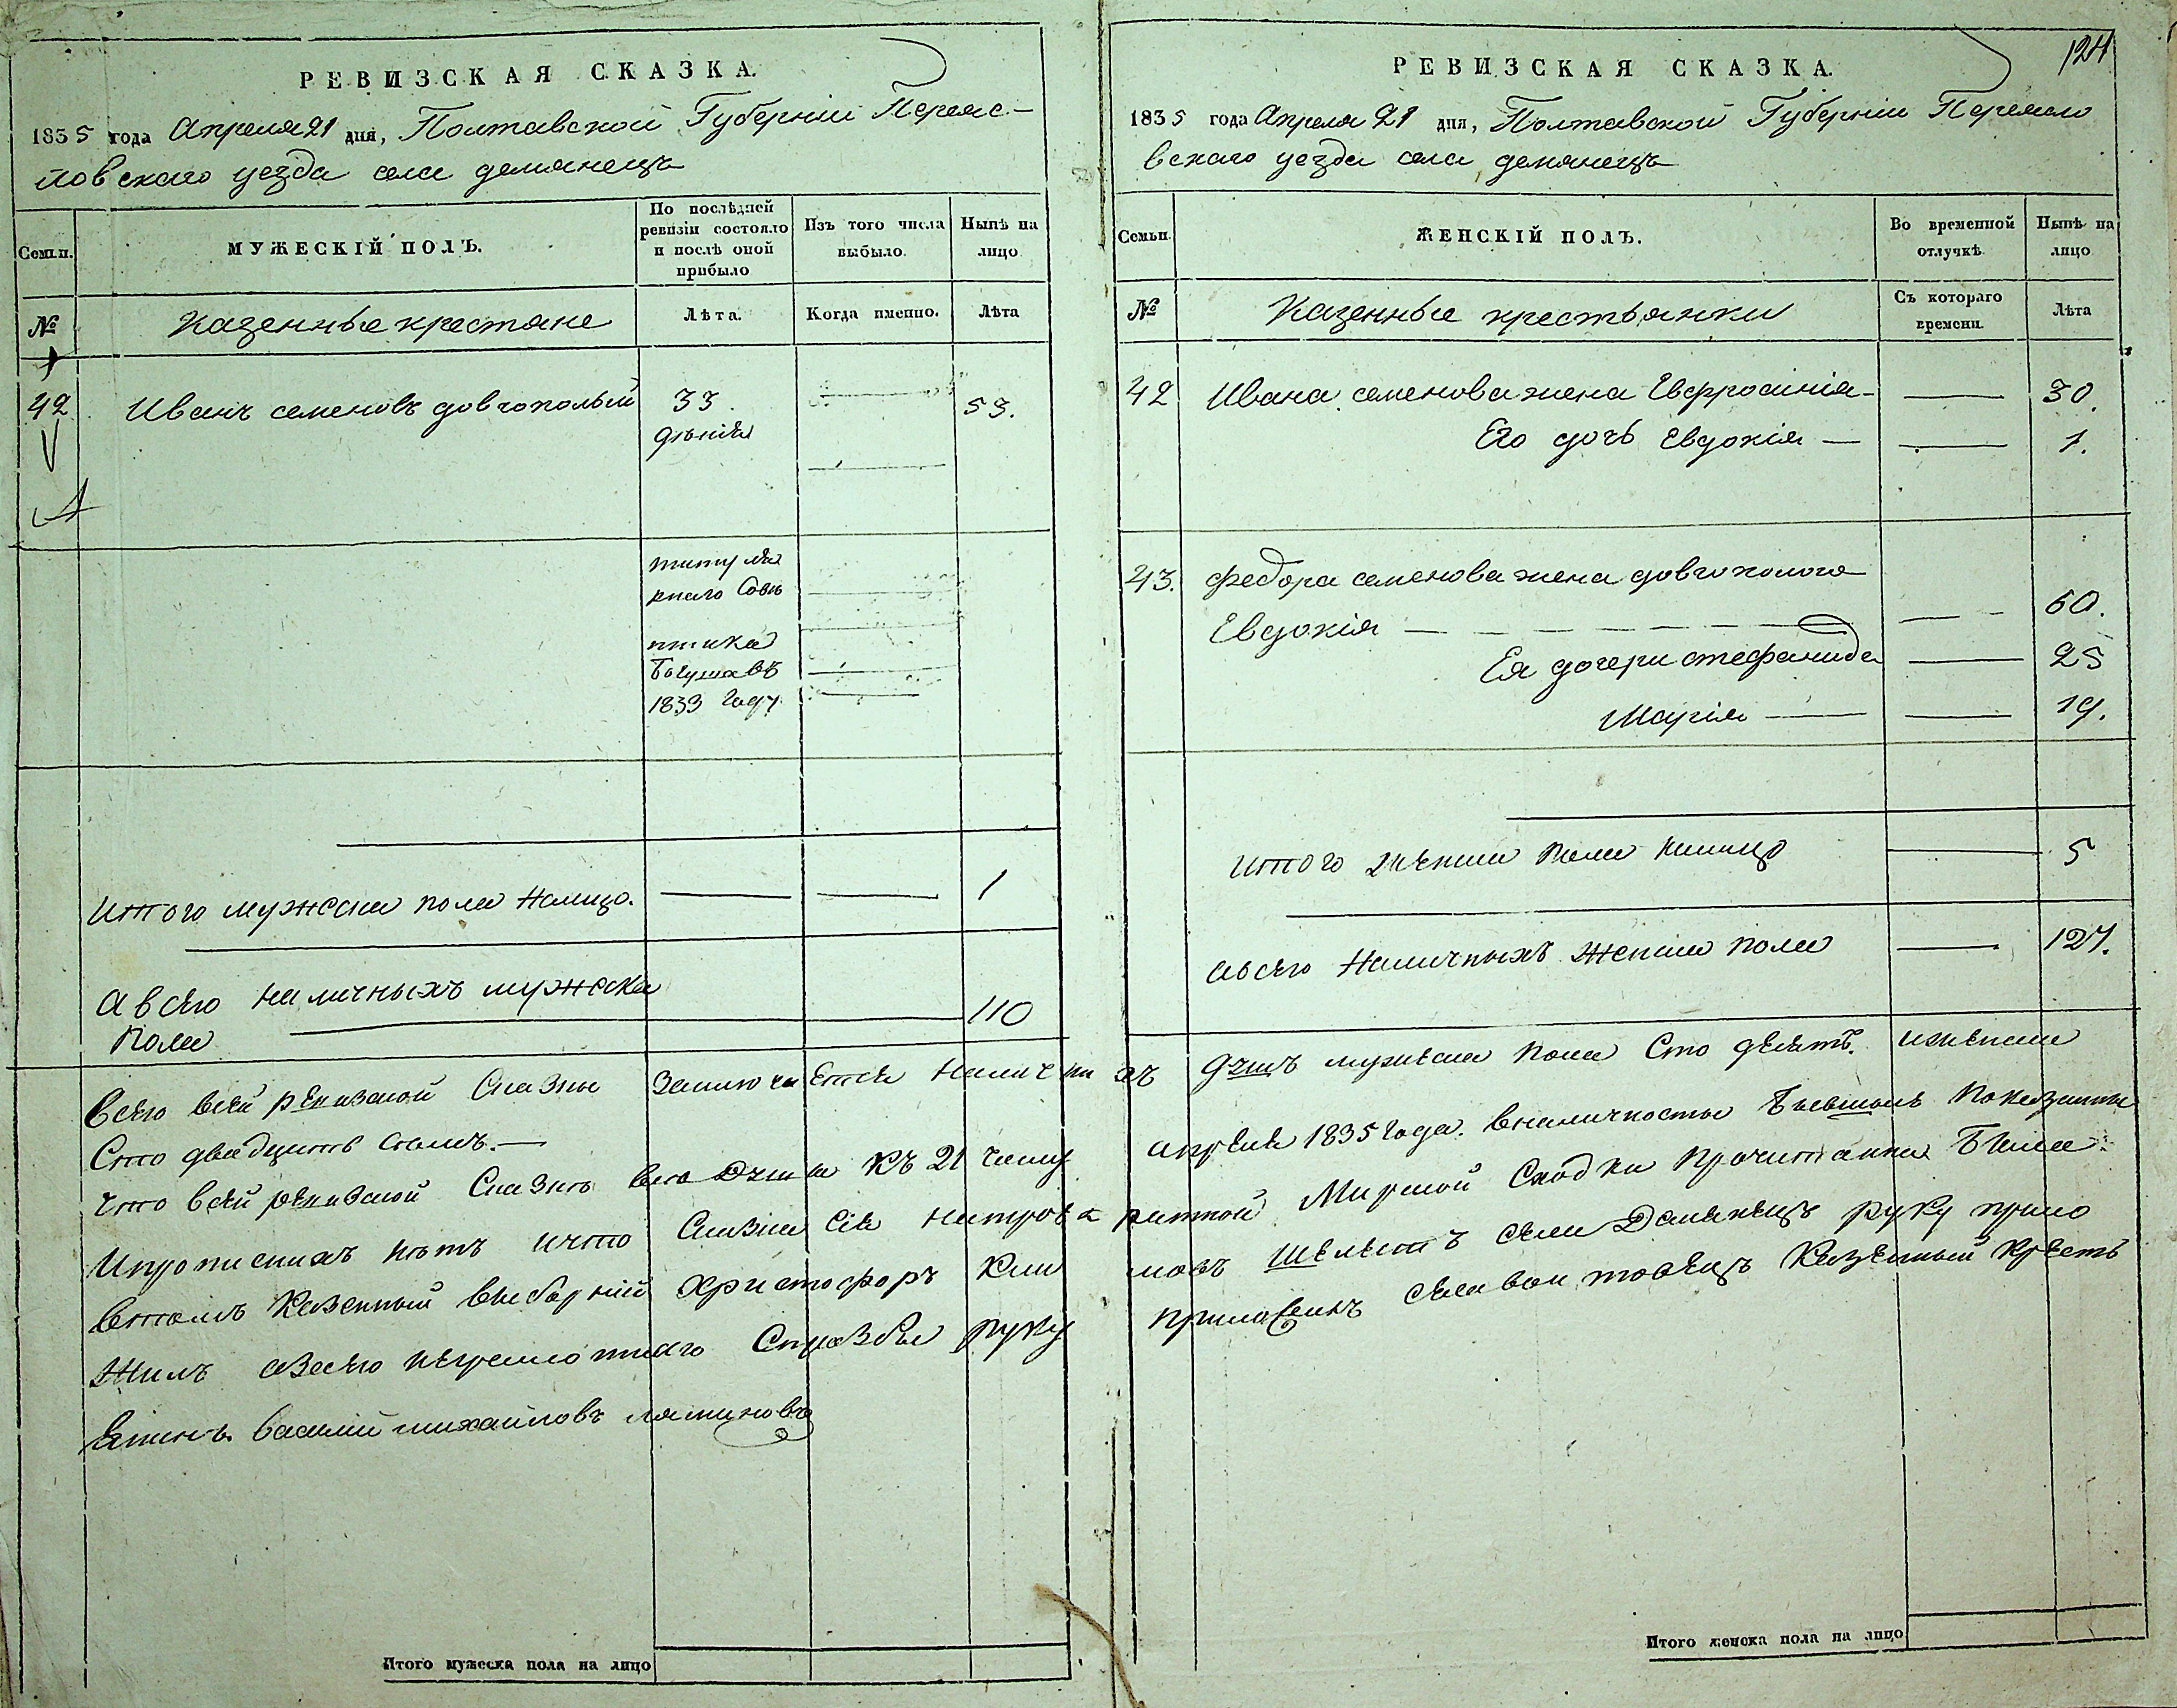 РЕВИЗСКАЯ СКАЗКА.
1835 года Апреля 21 дня, Полтавской Губерніи Переяс-
ловскаго уезда села демянецъ
Семьи.
МУЖЕСКІЙ ПОЛЪ.
По послѣдней ревизіи состояло и послѣ оной прибыло
Изъ того числа выбыло.
Нынѣ на лицо
№
Казенные крестяне
Лѣта.
Когда именно.
Лѣта
42 Иванъ семеновъ довгополый 33 53.
титуля
1833 году
Итого мужеска пола Налицо. 1
Авсего наличныхъ мужска
пола 110
РЕВИЗСКАЯ СКАЗКА. 124
1835 года Апреля 21 дня, Полтавской Губерніи Переясло
вскаго уезда села демянецъ
Семьи.
ЖЕНСКІЙ ПОЛЪ.
Во временной отлучкѣ
Нынѣ на лицо
№
Казенные крестьянки
Съ котораго времени.
Лѣта
42 Ивана семенова жена Евфросинія 30.
Его дочь Евдокія 1.
43. Федора семенова жена довгополого
Евдокія 60.
Ея дочери стефанида 25
Марія 19.
Итого женска пола налицо 5
Авсего Наличныхъ женска пола 127.
Всего всей ревизской Сказке заключается Наличныхъ душъ мужеска пола Сто десять. иженска
Сто двадцать семь.
Что всей ревизской Сказке все Души къ 21 числу апреля 1835 года. вналичности бывшые показанны
Ипрописныхъ нетъ ичто Сказка сія на Мирской Сходки прочитанна Была.
втомъ Казенный выборній Христофоръ Климовъ Шелестъ села Демянецъ руку прило
жилъ авместо неграмотнаго Спрозбы руку приложилъ села войтовецъ Казенный кресть
янинъ. Василий михайловъ
Итого мужеска пола на лицо
Итого женска пола на лицо